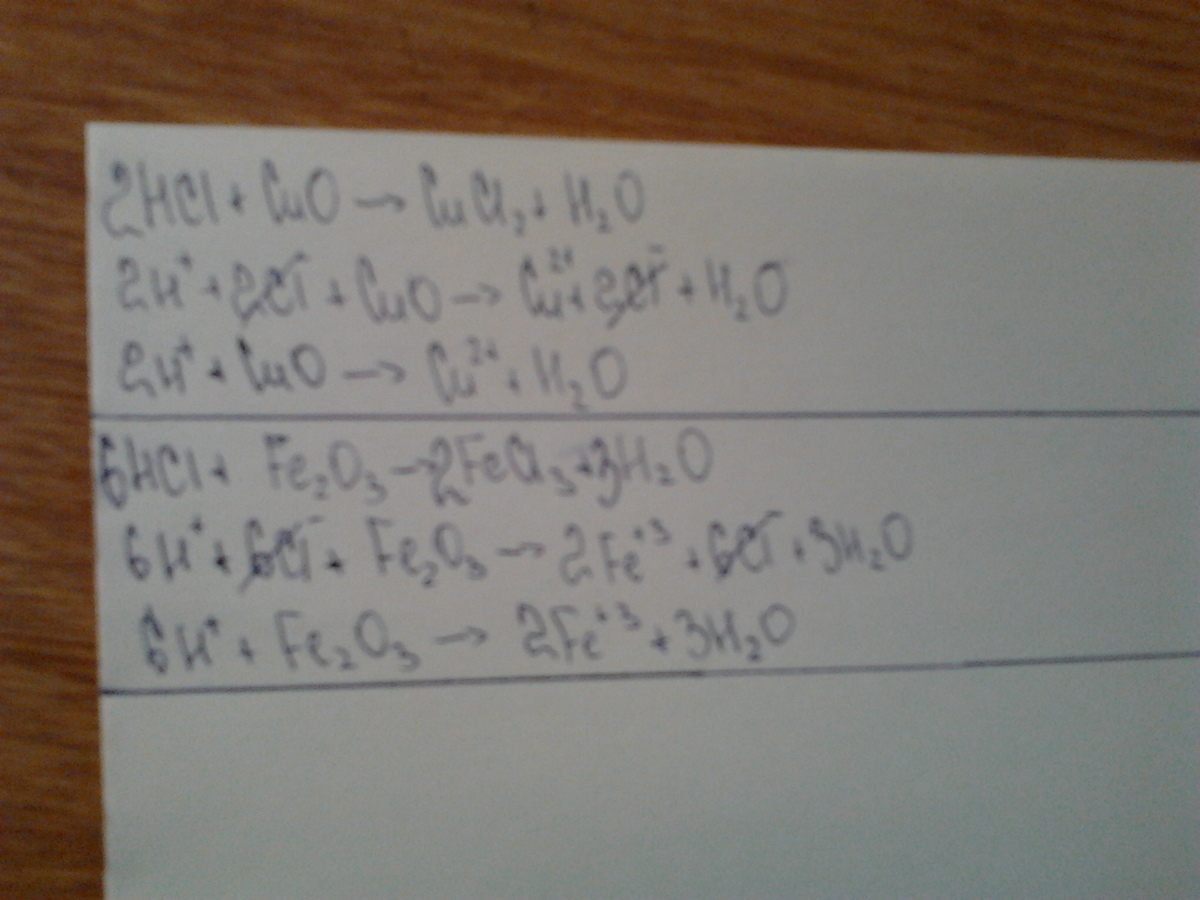 2HCl + CuO → CuCl₂ + H₂O
2H⁺ + 2Cl⁻ + CuO → Cu²⁺ + 2Cl⁻ + H₂O
2H⁺ + CuO → Cu²⁺ + H₂O
6HCl + Fe₂O₃ → 2FeCl₃ + 3H₂O
6H⁺ + 6Cl⁻ + Fe₂O₃ → 2Fe⁺³ + 6Cl⁻ + 3H₂O
6H⁺ + Fe₂O₃ → 2Fe⁺³ + 3H₂O